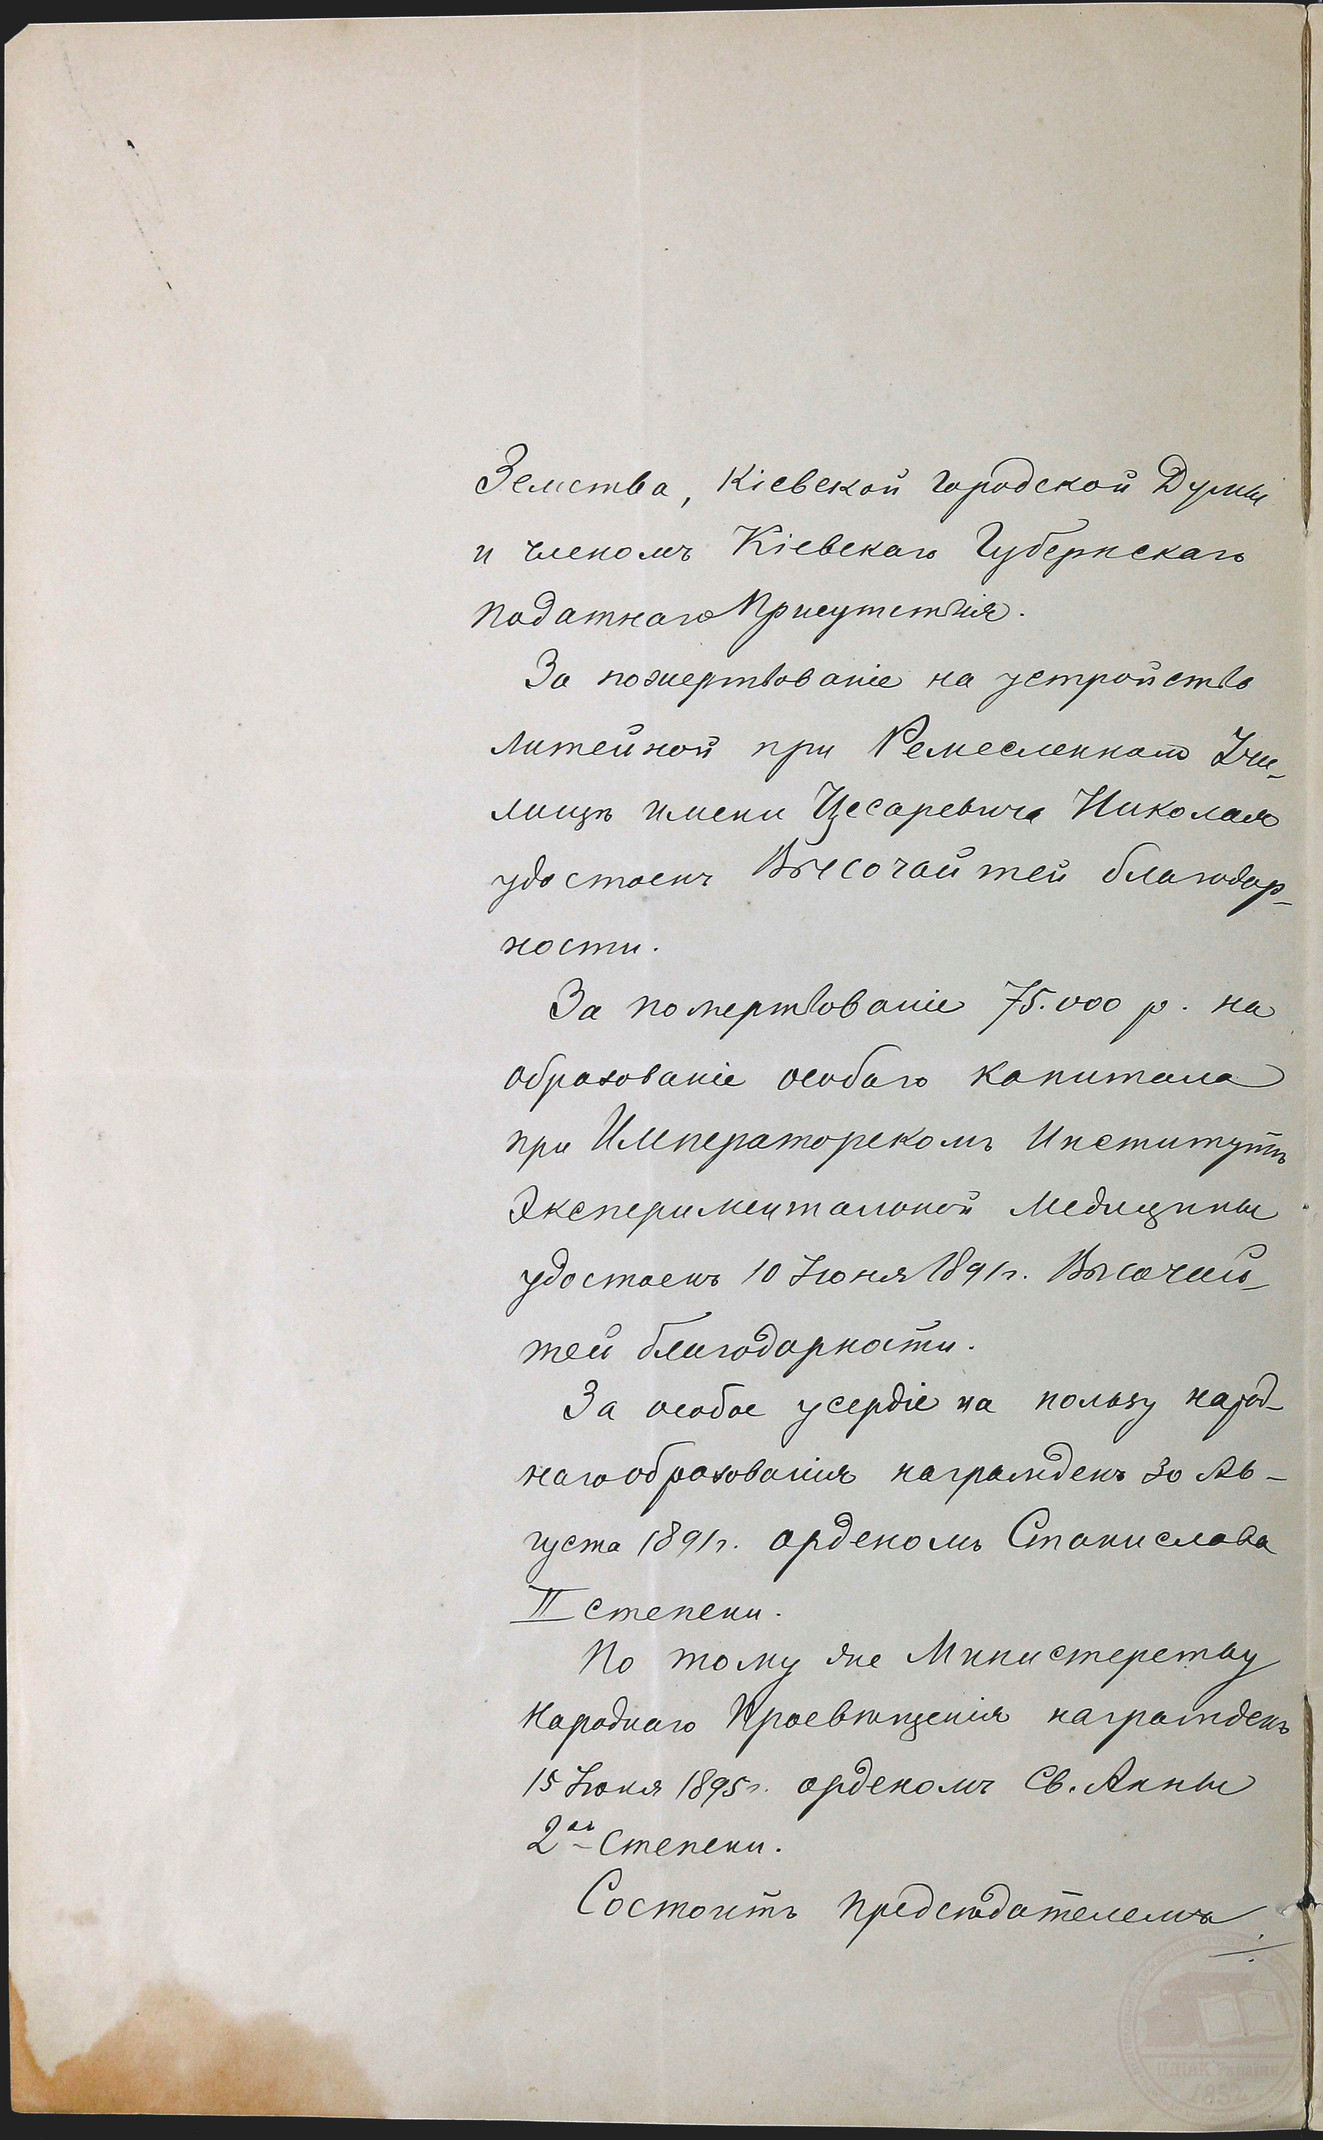 Земства, Кіевской Городской Думы
и членомъ Кіевскаго Губернскаго
Податнаго Присутствія.
За пожертвованіе на устройство
литейной при Ремесленномъ Учи-
лищѣ имени Цесаревича Николая
удостоенъ Высочайшей благодар-
ности.
За пожертвованіе 75.000 р. на
образованіе особаго капитала
при Императорскомъ Институтѣ
Экспериментальной Медицины
удостоенъ 10 Іюня 1891 г. Высочай-
шей благодарности.
За особое усердіе на пользу народ-
наго образованія награжденъ 30 Ав-
густа 1891 г. орденомъ Станислава
II степени.
По тому же Министерству
Народнаго Просвѣщенія награжденъ
15 Іюня 1895 г. орденомъ Св. Анны
2ой степени.
Состоитъ предсѣдателемъ
ЦДІАК України
1852